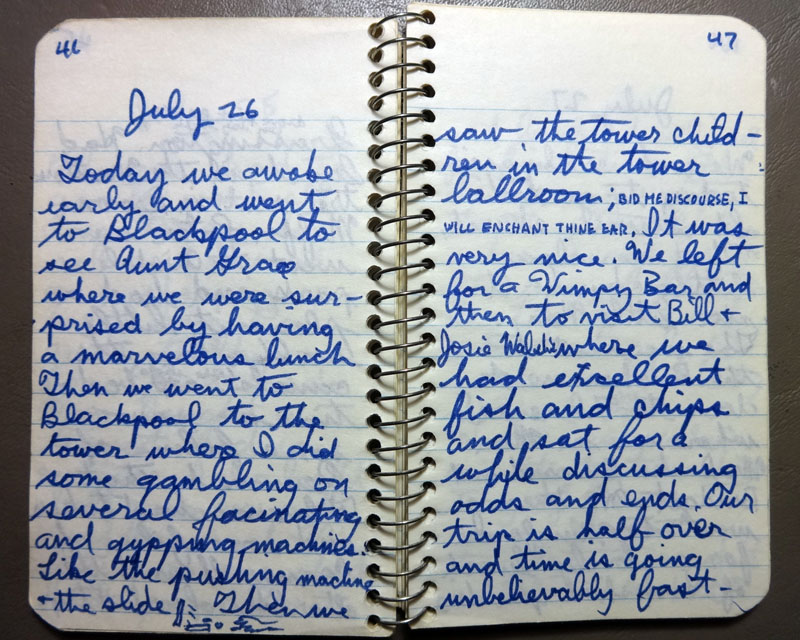 46
July 26
Today we awoke
early and went
to Blackpool to
see Aunt Grace
where we were sur-
prised by having
a marvelous lunch
Then we went to
Blackpool to the
tower where I did
some gambling on
several facinating
and gypping machines.
Like the pushing machine
+ the slide! Then we
47
saw the tower child-
ren in the tower
ballroom; BID ME DISCOURSE, I
WILL ENCHANT THINE EAR. It was
very nice. We left
for a Wimpy Bar and
then to visit Bill +
Josie where we
had excellent
fish and chips
and sat for a
while discussing
odds and ends. Our
trip is half over
and time is going
unbelievably fast-